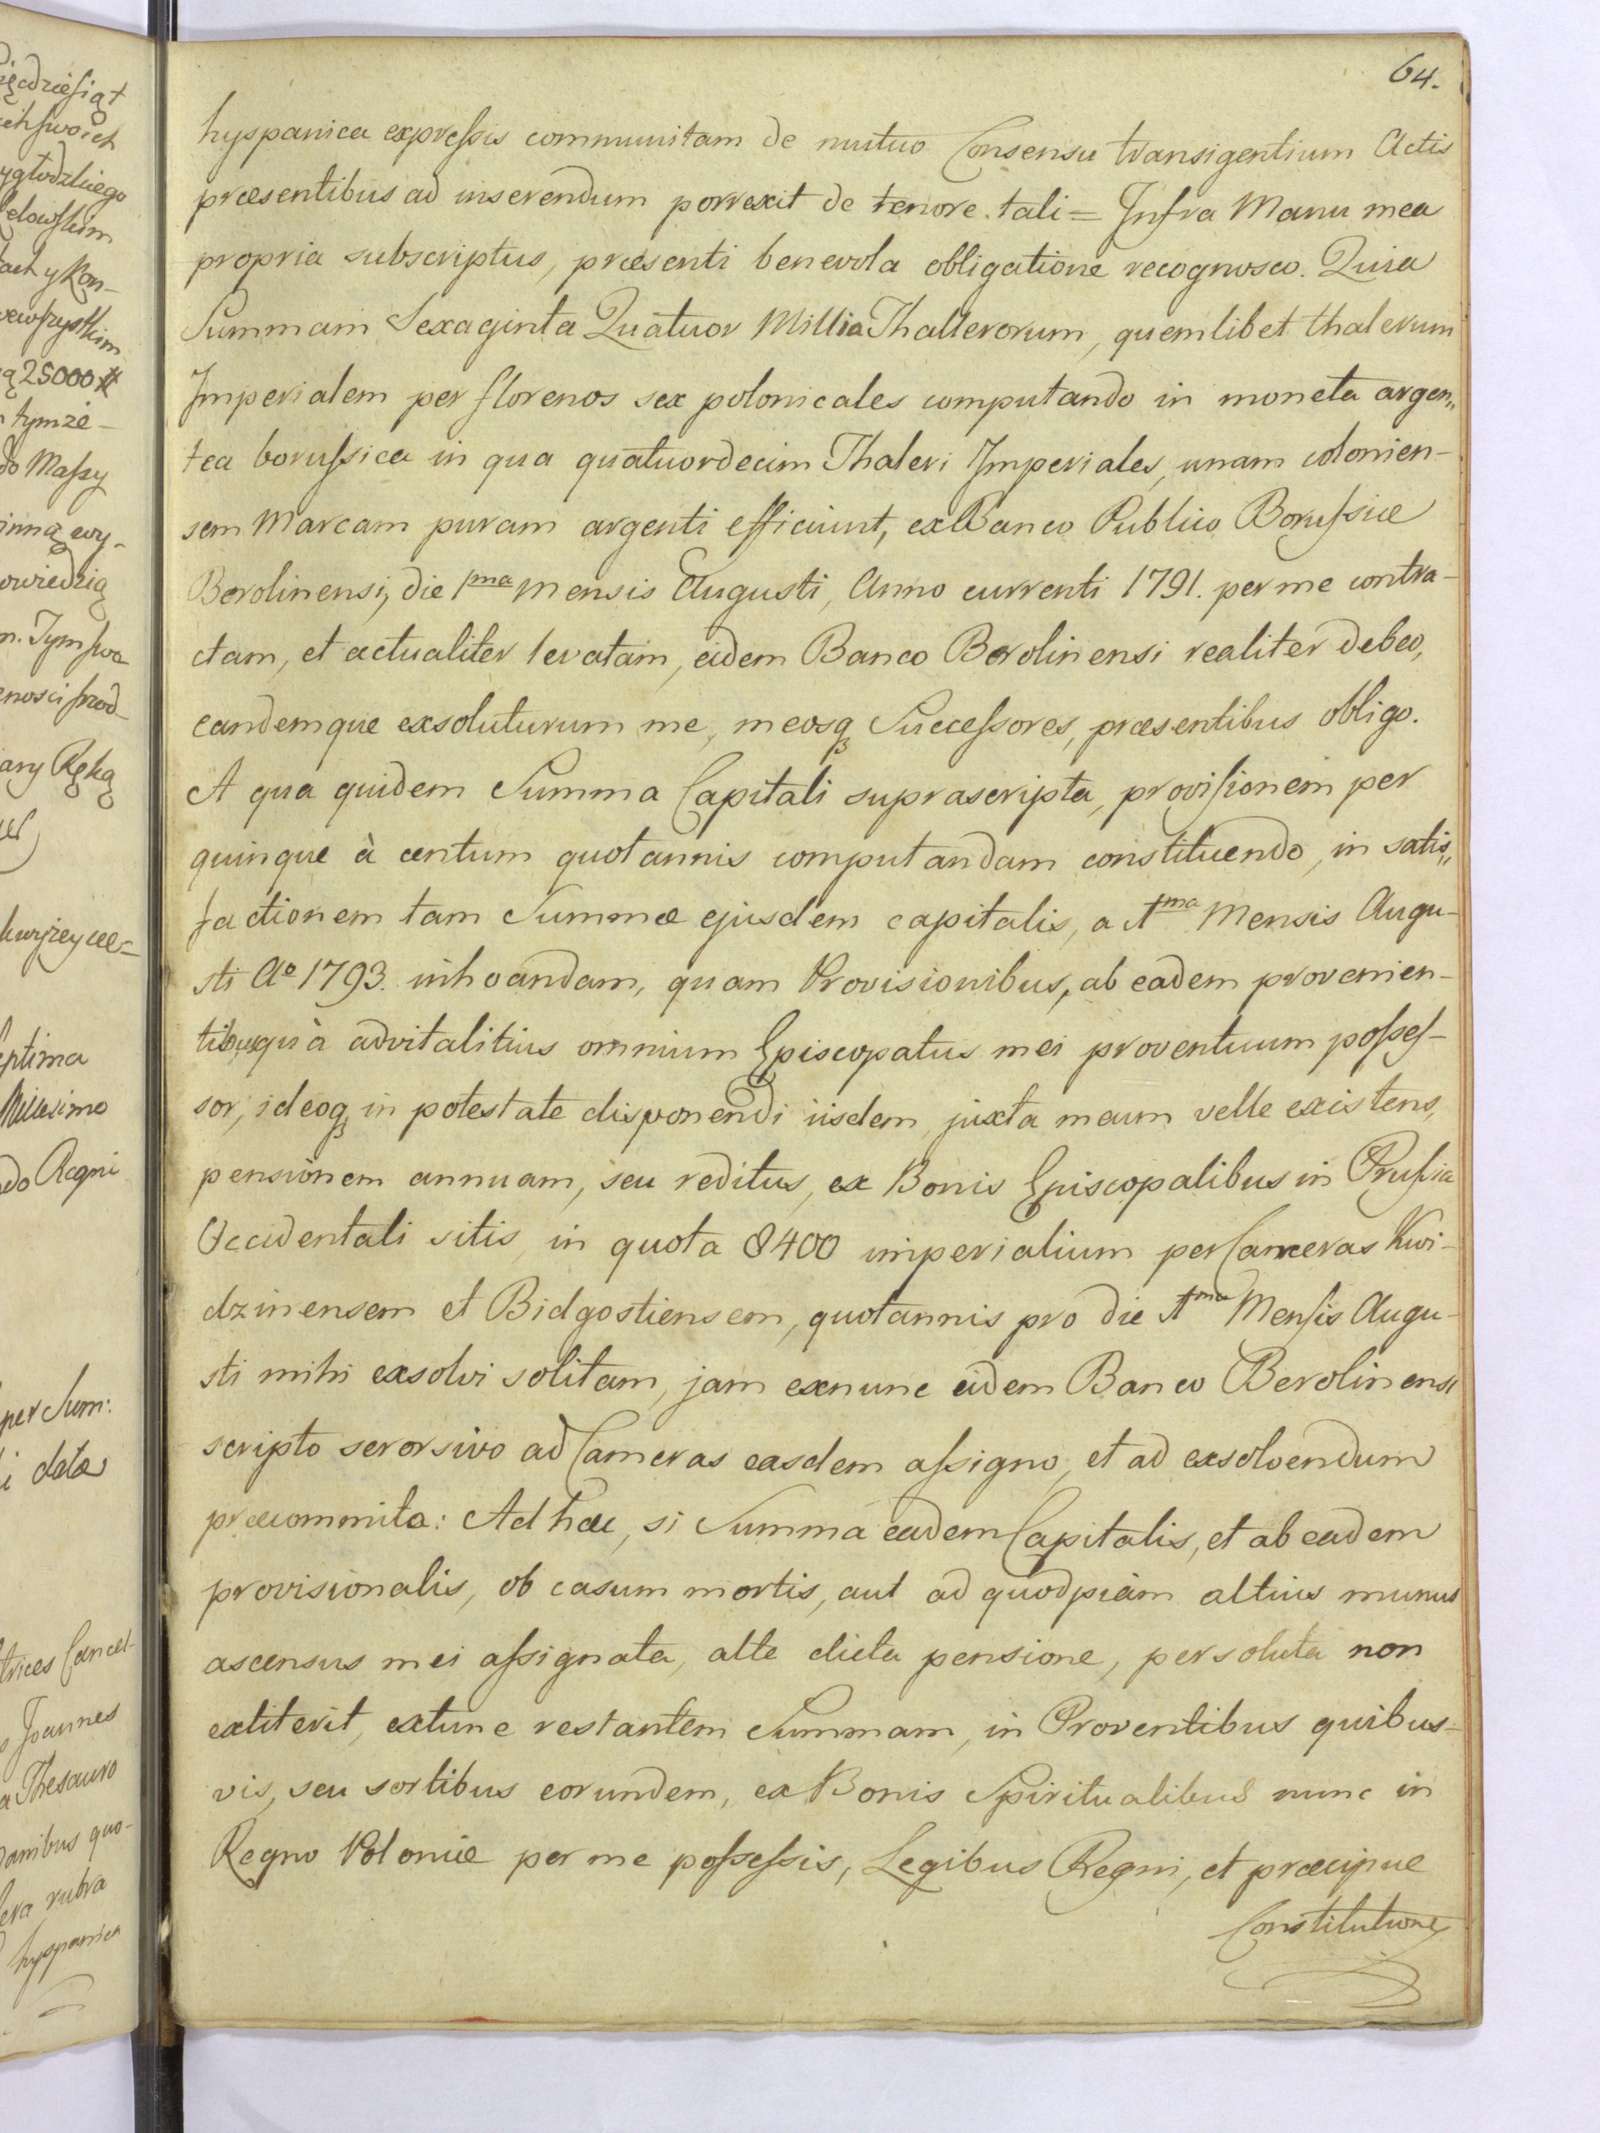 64.
hyspanica expressis communitam de mutuo Consensu transigentium Actis
præsentibus ad inserendum porrexit de tenore tali = Infra Manu mea
propria subscriptus, præsenti benevola obligatione recognosco. Quia
Summam Sexaginta Quatuor Millia Thallerorum, quemlibet thalerum
Imperialem per florenos sex polonicales computando in moneta argen„
tea borussica in qua quatuordecim Thaleri Imperiales, unam colonien-
sem Marcam puram argenti efficiunt, ex Banco Publico Borussiæ
Berolinensi, die 1ma mensis Augusti, Anno currenti 1791. per me contra-
ctam, et actualiter levatam, eidem Banco Berolinensi realiter debeo,
eandemque exsoluturum me, meosq Successores, præsentibus obligo.
A qua quidem Summa Capitali suprascripta, provisionem per
quinque à centum quotannis computandam constituendo, in satis„
factionem tam Summæ ejusdem capitalis, a 1ma Mensis Augu-
sti Ao 1793. inhoandam, quam Provisionibus, ab eadem provenien-
tibus, quà advitalitius omnium Episcopatus mei proventuum posses-
sor, ideoq in potestate disponendi iisdem, juxta meum velle existens,
pensionem annuam, seu reditus, ex Bonis Episcopalibus in Prussia
Occidentali sitis, in quota 8400 imperialium per Cameras Kwi-
dzinensem et Bidgostiensem, quotannis pro die 1ma Mensis Augu-
sti mihi exsolvi solitam, jam exnunc eidem Banco Berolinensi
scripto serorsivo ad Cameras easdem assigno, et ad exsolvendum
præcommito: Ad hæc, si Summa eadem Capitalis, et ab eadem
provisionalis, ob casum mortis, aut ad quodpiam altius munus
ascensus mei assignata, alte dicta pensione, persoluta non
extiterit, extunc restantem Summam, in Proventibus quibus-
vis, seu sortibus eorundem, ex Bonis Spiritualibus nunc in
Regno Poloniæ per me possessis, Legibus Regni, et præcipue
Constitutione